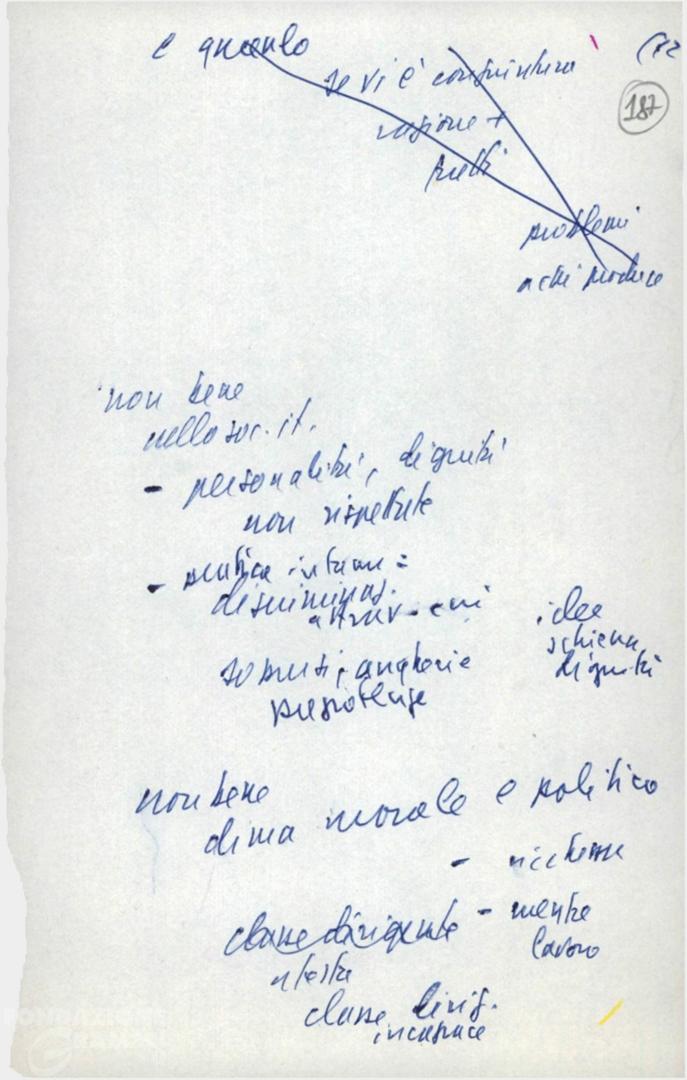 e quando
(12
se vi è congiuntura
187
ragione +
problemi
a chi produce
non bene
nella soc. it.
- personalità, dignità
non rispettate
- pratica infame =
discriminaz.
attrav.
idee
schiena
dignità
soprusi, angherie
prepotenze
non bene
clima morale e politico
- ricchezze
classe dirigente - mentre
lavoro
classe dirig.
incapace